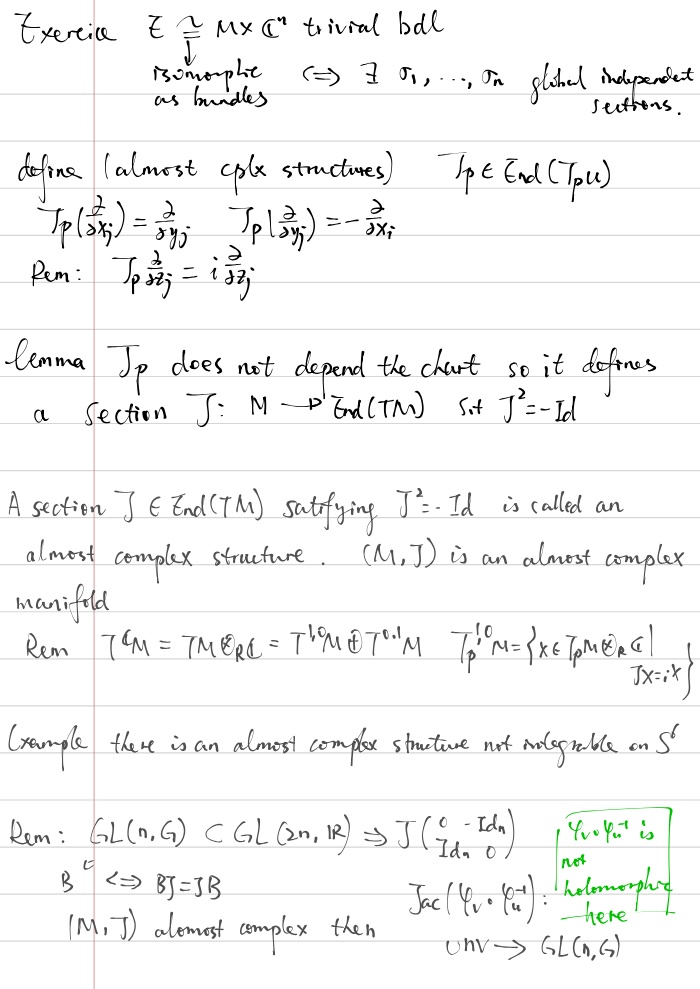 Exercice E ≅ M×ℂⁿ trivial bdl
↓
isomorphic as bundles ⟺ ∃ σ₁, ..., σₙ global independent sections.
define (almost cplx structures) Jp ∈ End(TpU)
Jp(∂/∂xj) = ∂/∂yj Jp(∂/∂yj) = -∂/∂xi
Rem: Jp ∂/∂zj = i ∂/∂zj
lemma Jp does not depend the chart so it defines
a section J: M → End(TM) s.t J² = -Id
A section J ∈ End(TM) satifying J² = -Id is called an
almost complex structure. (M,J) is an almost complex
manifold
Rem TᶜM = TM⊗ℝℂ = T¹,⁰M ⊕ T⁰·¹M Tp¹,⁰M = {X ∈ TpM⊗ℝ ℂ |
JX = iX}
Example there is an almost complex structure not integrable on S⁶
Rem: GL(n,ℂ) ⊂ GL(2n,ℝ) ⟹ J(0 -Idn
Idn 0)
B ∈ ⟺ BJ = JB
Jac(φv∘φu⁻¹):
φv∘φu⁻¹ is
not
holomorphic
here
(M,J) alomost complex then
U∩V → GL(n,ℂ)